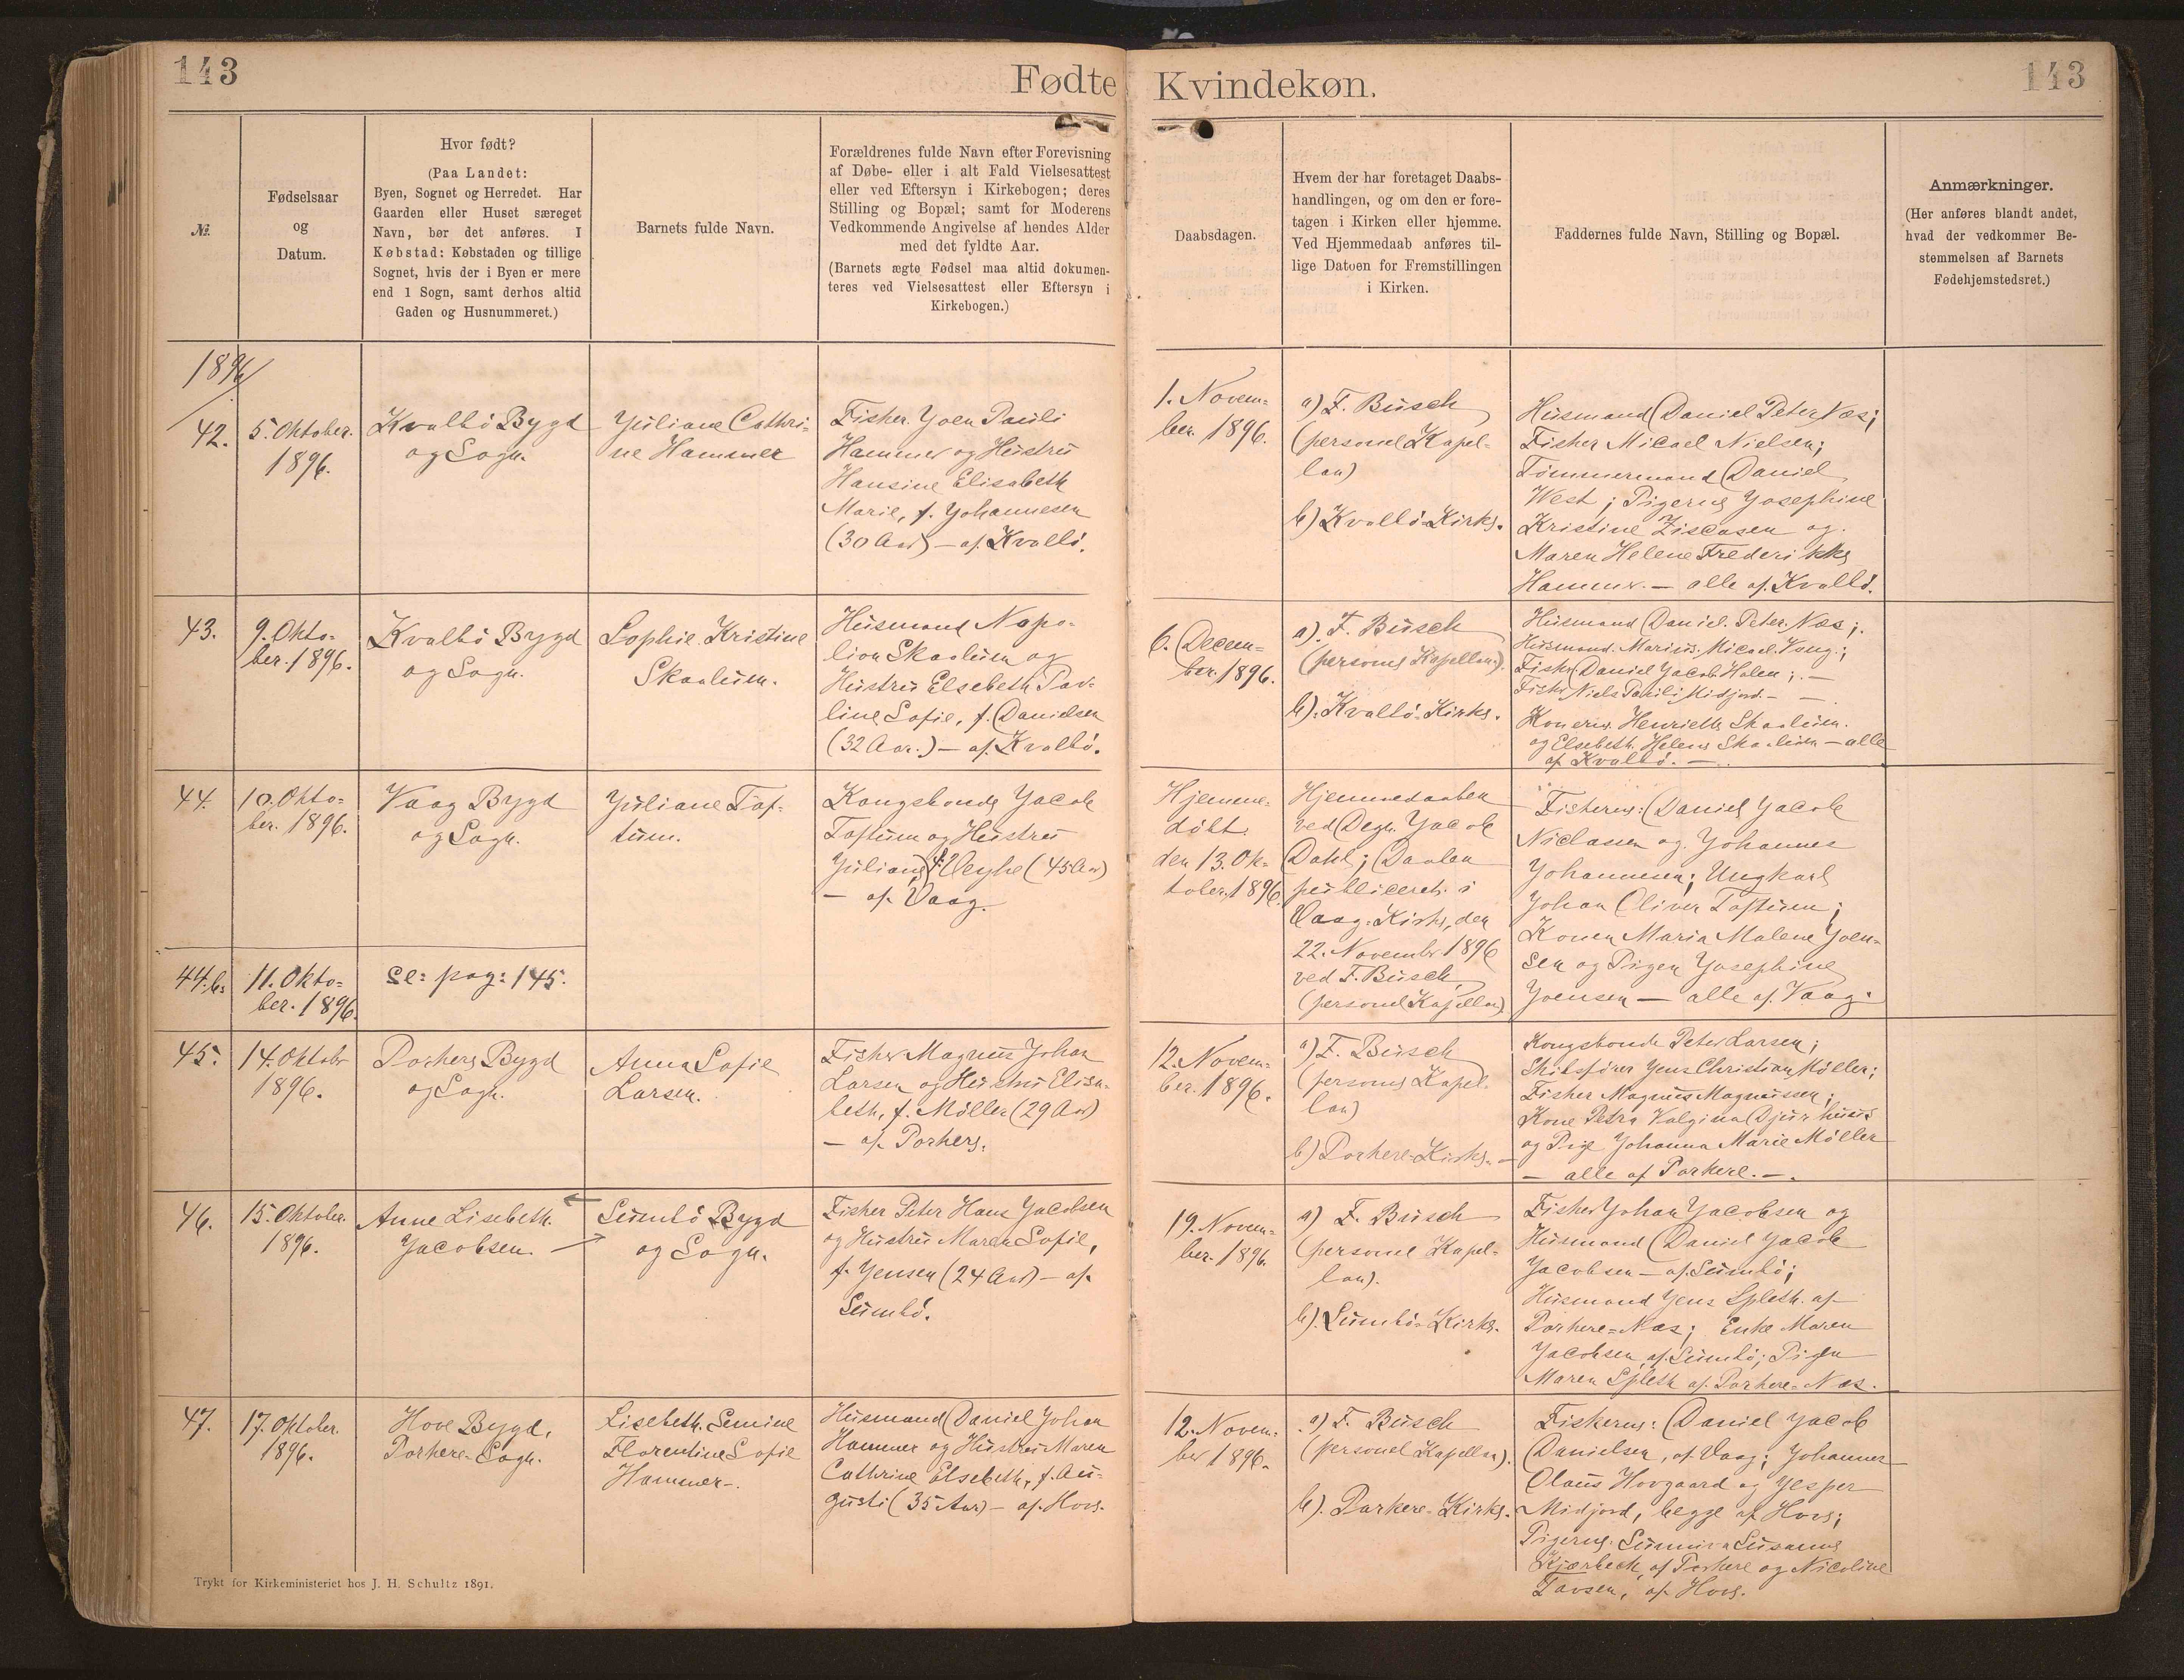 143
Fødte
Kvindekøn.
143
№.
Fødselsaar
og
Datum.
Hvor født?
(Paa Landet:
Byen, Sognet og Herredet. Har
Gaarden eller Huset særeget
Navn, bør det anføres. I
Købstad: Købstaden og tillige
Sognet, hvis der i Byen er mere
end 1 Sogn, samt derhos altid
Gaden og Husnummeret.)
Barnets fulde Navn.
Forældrenes fulde Navn efter Forevisning
af Døbe- eller i alt Fald Vielsesattest
eller ved Eftersyn i Kirkebogen; deres
Stilling og Bopæl; samt for Moderens
Vedkommende Angivelse af hendes Alder
med det fyldte Aar.
(Barnets ægte Fødsel maa altid dokumen-
teres ved Vielsesattest eller Eftersyn i
Kirkebogen.)
Daabsdagen.
Hvem der har foretaget Daabs-
handlingen, og om den er fore-
tagen i Kirken eller hjemme.
Ved Hjemmedaab anføres til-
lige Datoen for Fremstillingen
i Kirken.
Faddernes fulde Navn, Stilling og Bopæl.
Anmærkninger.
(Her anføres blandt andet,
hvad der vedkommer Be-
stemmelsen af Barnets
Fødehjemstedsret.)
1896
42.
5. Oktober.
1896.
Kvalbö Bygd
og Sogn.
Juliane Cathri-
ne Hammer
Fisker Joen Pauli
Hammer og Hustru
Hansine Elisabeth
Marie, f. Johannesen
(30 Aar) — af Kvalbö.
1. Novem-
ber. 1896.
a) F. Busch
(personel Kapel-
lan)
b) Kvalbö-Kirke.
Husmand Daniel Peter Næs;
Fisker Micael Nielsen;
Tömmermand Daniel
West; Pigerne Josephine
Kristine Ziscasen og
Maren Helene Frederikke
Hammer. — alle af Kvalbö.
43.
9. Okto-
ber. 1896.
Kvalbö Bygd
og Sogn.
Sophie Kristine
Skaalum.
Husmand Napo-
lion Skaalum og
Hustru Elsebeth Pav-
line Sofie, f. Danielsen
(32 Aar.) — af Kvalbö.
6. Decem-
ber. 1896.
a). F. Busch
(personel Kapellan).
b). Kvalbö-Kirke.
Husmand Daniel Peter Næs;
Husmand Marius Micael Vang;
Fisker Daniel Jacob Holm; —
Fisker Niels Pauli Midjord. —
Konerne Henriette Skaalum.
og Elsebeth Helene Skaalum — alle
af Kvalbö. —
44.
10. Okto-
ber. 1896.
Vaag Bygd
og Sogn.
Juliane Tof-
tum.
Kongsbonde Jacob
Toftum og Hustru
Juliane, f. Veyhe (45 Aar)
— af Vaag.
Hjemme-
döbt.
den 13. Ok-
tober, 1896.
Hjemmedaaben
ved Degn. Jacob
Dahl; Daaben
publiceret i
Vaag-Kirke, den
22. November 1896
ved F. Busch
(personel Kapellan)
Fiskerne: Daniel Jacob
Niclassen og Johannes
Johannesen; Ungkarl
Johan Oliver Toftum;
Konen Maria Malene Joen-
sen og Pigen Josephine
Joensen — alle af Vaag.
44.b.
11. Okto-
ber. 1896.
se: pag: 145.
45.
14. Oktober
1896.
Porkere Bygd
og Sogn.
Anna Sofie
Larsen.
Fisker Magnus Johan
Larsen og Hustru Elisa-
beth, f. Möller (29 Aar)
— af Porkere.
12. Novem-
ber. 1896.
a) F. Busch
(personel Kapel-
lan)
b) Porkere-Kirke. —
Kongsbonde Peter Larsen;
Skibsförer Jens Christian Möller;
Fisker Magnus Magnussen;
Kone Petra Valgina Djurhuus
og Pige Johanna Marie Möller
— alle af Porkere. —.
46.
15. Oktober.
1896.
Anne Lisebeth
Jacobsen.
Sumbö Bygd
og Sogn.
Fisker Peter Hans Jacobsen
og Hustru Maren Sofie,
f. Jensen (24 Aar) — af
Sumbö.
19. Novem-
ber. 1896.
a) F. Busch
(personel Kapel-
lan).
b). Sumbö-Kirke.
Fisker Johan Jacobsen og
Husmand Daniel Jacob
Jacobsen — af Sumbö;
Husmand Jens Spleth af
Porkere=Næs; Enke Maren
Jacobsen, af Sumbö; Pigen
Maren Spleth af Porkere-Næs.
47.
17. Oktober.
1896.
Hove Bygd,
Porkere-Sogn.
Lisebeth Semine
Florentine Sofie
Hammer.
Husmand Daniel Johan
Hammer og Hustru Maren
Cathrine Elsebeth, f. Au-
gusti (35 Aar) — af Hove.
12. Novem-
ber 1896.
a) F. Busch
(personel Kapellan).
b). Porkere-Kirke.
Fiskerne: Daniel Jacob
Danielsen, af Vaag; Johannes
Olaus Hovgaard og Jesper
Midjord, begge af Hove;
Pigerne Sunniva Susanne
Kjærbech, af Porkere og Nicoline
Tavsen, af Hove.
Trykt for Kirkeministeriet hos J. H. Schultz 1891.